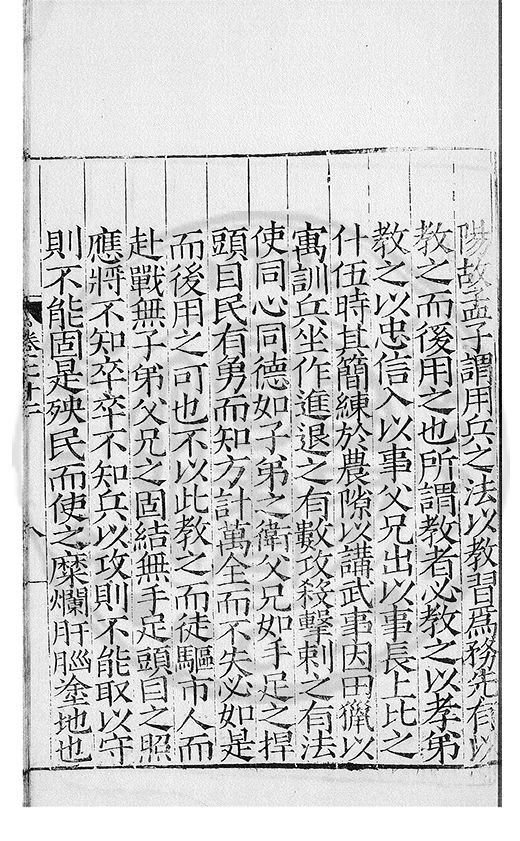 陽故孟子謂用兵之法以教習爲務先有以
教之而後用之也所謂教者必教之以孝弟
教之以忠信入以事父兄出以事長上比之
什伍時其簡練於農隙以講武事因田獵以
寓訓兵坐作進退之有數攻殺擊刺之有法
使同心同德如子弟之衛父兄如手足之捍
頭目民有勇而知方計萬全而不失必如是
而後用之可也不以此教之而徒驅市人而
赴戰無子弟父兄之固結無手足頭目之照
應將不知卒卒不知兵以攻則不能取以守
則不能固是殃民而使之糜爛肝腦塗地也